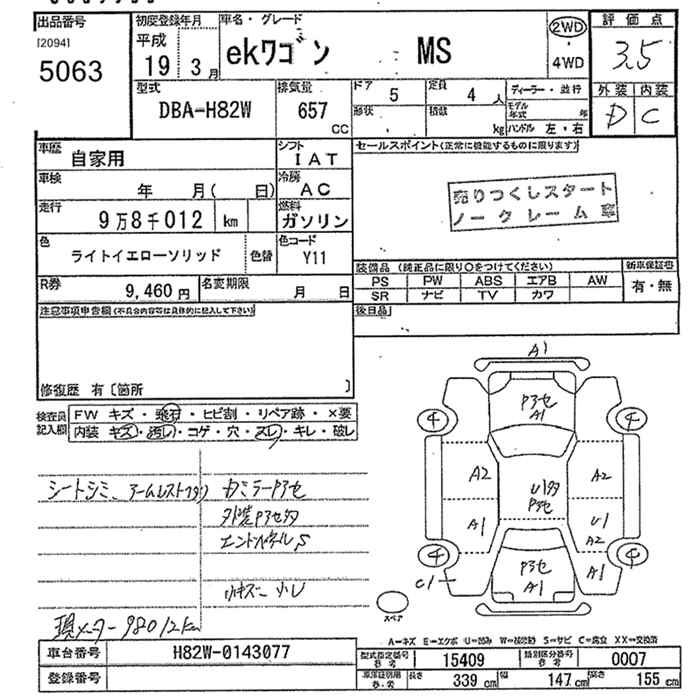 出品番号
[2094]
5063
初度登録年月
平成
19 3月
車名・グレード
ekワゴン MS
2WD
・
4WD
評価点
3.5
外装 内装
D C
型式
DBA-H82W
排気量
657
CC
ドア 5
定員 4 人
形状
積載 kg
ディーラー・並行
モデル年式 年
ハンドル 左・右
車歴 自家用
シフト IAT
車検 年 月( 日)
冷房 AC
走行 9万8千012 km
燃料 ガソリン
色 ライトイエローソリッド 色替
色コード Y11
R券 9,460円
名変期限 月 日
セールスポイント(正常に機能するものに限ります)
売りつくしスタート
ノークレーム
装備品 (純正品に限り○をつけてください)
新車保証書
PS PW ABS エアB AW
SR ナビ TV カワ
有・無
後日品
注意事項申告欄(不具合内容等は具体的に記入して下さい)
修復歴 有〔箇所 〕
検査員記入欄
FW キズ・飛石・ヒビ割・リペア跡・×要
内装 キズ・汚れ・コゲ・穴・スレ・キレ・破レ
シートシミ、アームレスト
カミラーPアセ
外装Pアセ
エンドパネルS
小キズ 小U
現メーター98012km
A1
Pアセ
A1
4 4
A2 A2
U
Pアセ
A1 U1
A2
4 4
C1
Pアセ
A1
A1
スペア
A=キズ E=エクボ U=凹み W=補修跡 S=サビ C=腐食 XX=交換済
車台番号 H82W-0143077
登録番号
型式指定番号 参考 15409
類別区分番号 参考 0007
車庫証明用 参考 長さ 339 cm 幅 147 cm 高さ 155 cm